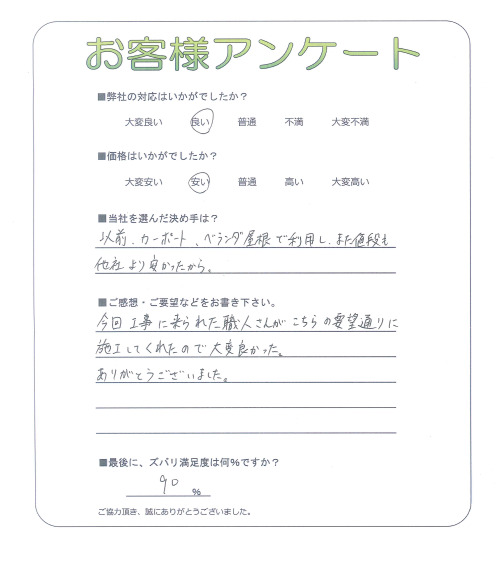 お客様アンケート
■弊社の対応はいかがでしたか?
大変良い 良い 普通 不満 大変不満
■価格はいかがでしたか?
大変安い 安い 普通 高い 大変高い
■当社を選んだ決め手は?
以前、カーポート、ベランダ屋根で利用し、また値段も
他社より良かったから。
■ご感想・ご要望などをお書き下さい。
今回工事に来られた職人さんがこちらの要望通りに
施工してくれたので大変良かった。
ありがとうございました。
■最後に、ズバリ満足度は何%ですか?
90 %
ご協力頂き、誠にありがとうございました。